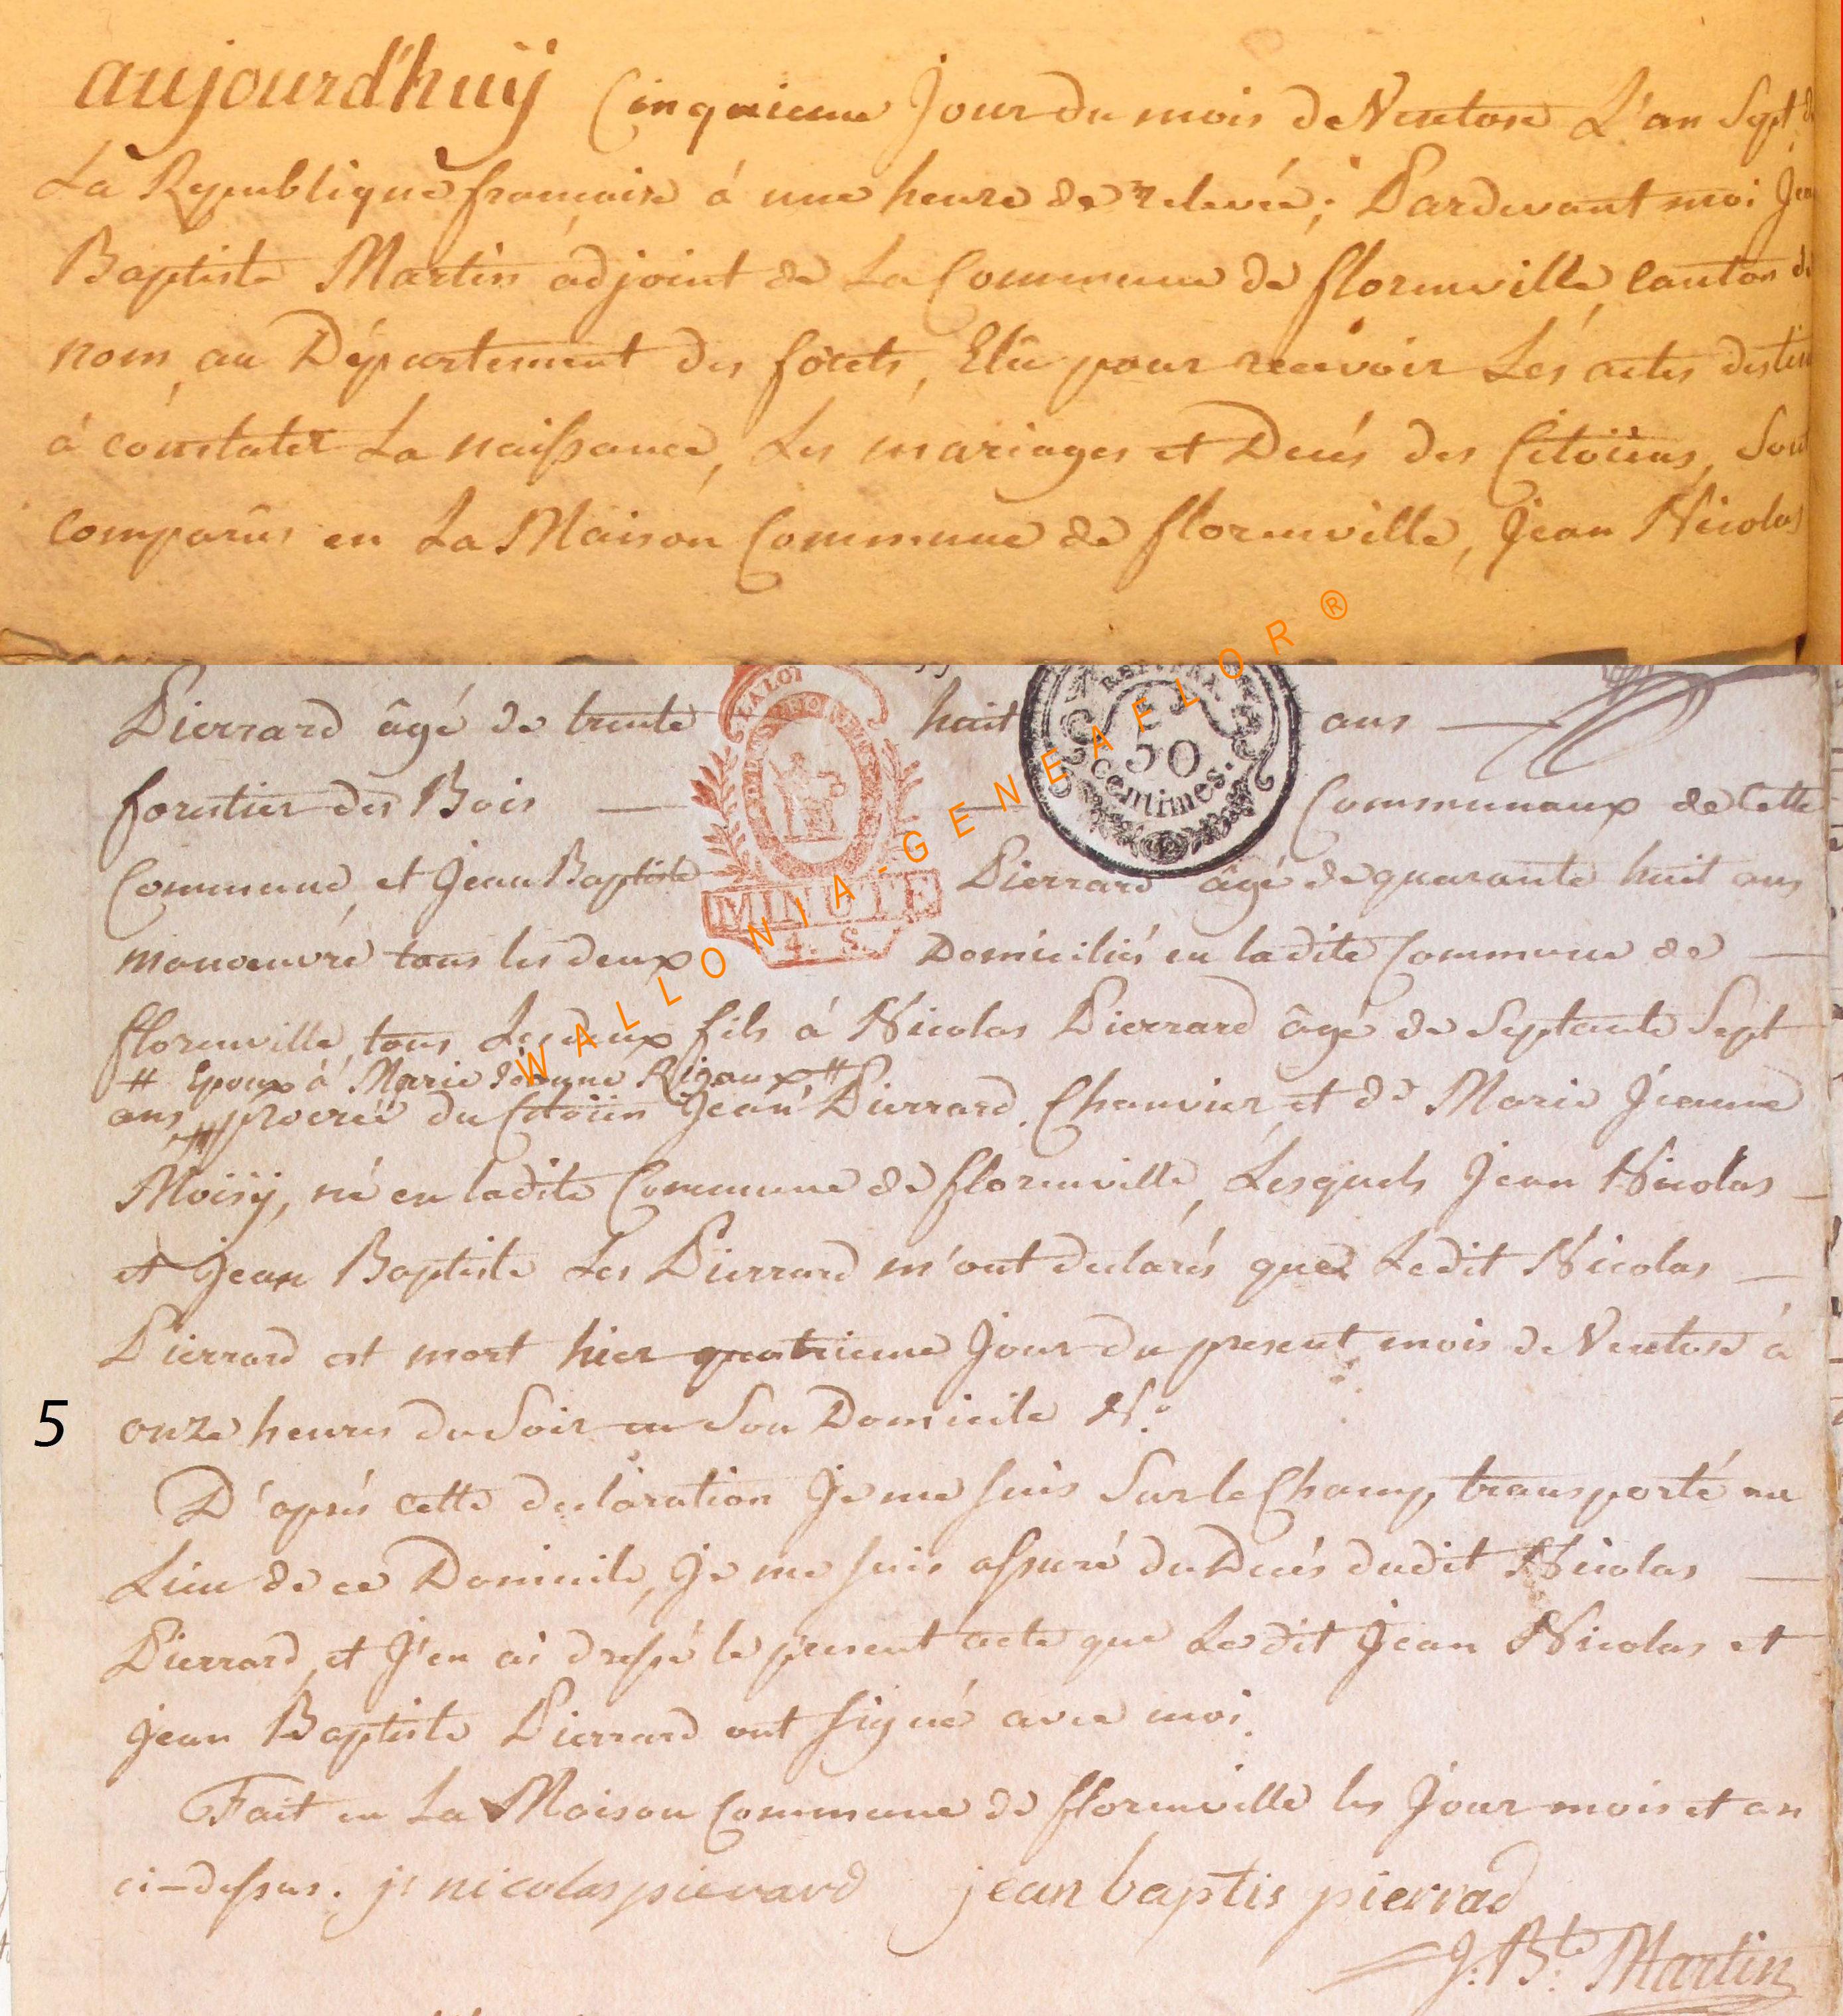 aujourd'huÿ Cinquieme Jour du mois de Ventose L'an Sept de
La Republique francaise á une heure de relevée; Pardevant moi Jean
Baptiste Martin adjoint de La Commune de florenville, Canton du
nom, au Département des forets, Elû pour recevoir Les actes destin
á constater La naissance, Les mariages et Decés des Citoiens, Sont
comparûs en La Maison Commune de florenville, Jean Nicolas
Pierrard âgé de trente huit ans
forestier des Bois Communaux de Cette
Commune, et Jean Baptiste Pierrard âgé de quarante huit ans
manoeuvre tous les deux Domiciliés en ladite Commune de
florenville, tous Les deux fils á Nicolas Pierrard âgé de Septante Sept
# Epoux á Marie Jeanne Rigaux, #
ans, # procréé du Citoien Jean Pierrard, Chanvrier, et de Marie Jeanne
Moisÿ, né en ladite Commune de florenville, Lesquels Jean Nicolas
et Jean Baptiste Les Pierrard m'ont declarés que Ledit Nicolas
Pierrard est mort hier quatrieme Jour du present mois de Ventose á
5 onze heures du Soir en Son Domicile N.º
D'aprés cette declaration Je me suis Sur le Champ, transporté au
Lieu de ce Domicile, Je me suis assuré du Decés dudit Nicolas
Pierrard, et J'en ai dressé le present acte que Ledit Jean Nicolas et
Jean Baptiste Pierrard ont signé avec moi.
Fait en La Maison Commune de florenville les Jour mois et an
ci-dessus. jr nicolas pierard jean baptis pierrad
J: B.te Martin
LA LOI
MINUTE
4. S.
50
centimes.
WALLONIA-GENEAFLOR ®